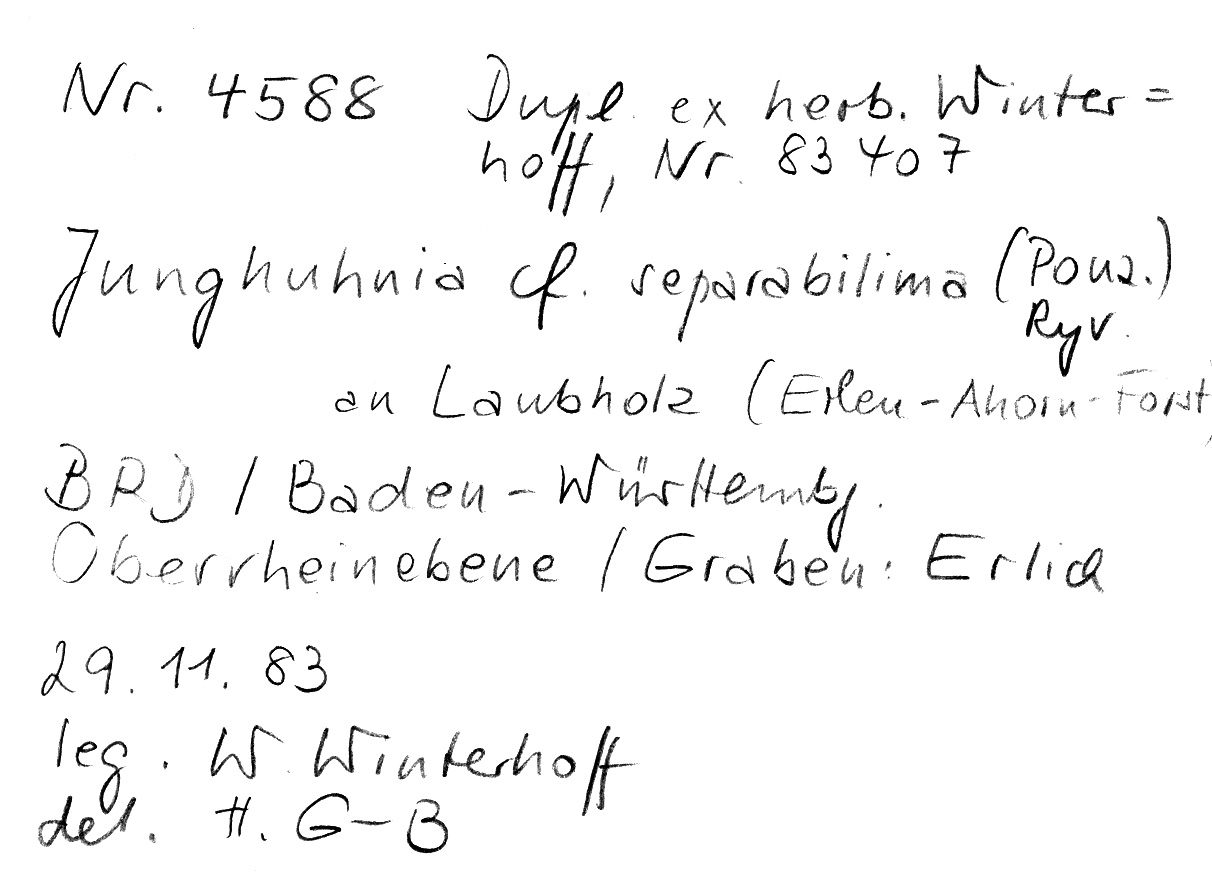 Nr. 4588 Dupl. ex herb. Winter=
hoff, Nr. 83407
Junghuhnia cf. separabilima (Pouz.)
Ryv.
an Laubholz (Erlen-Ahorn-Forst)
BRD / Baden-Württembg.
Oberrheinebene / Graben: Erlich
29. 11. 83
leg. W. Winterhoff
det. H. G-B